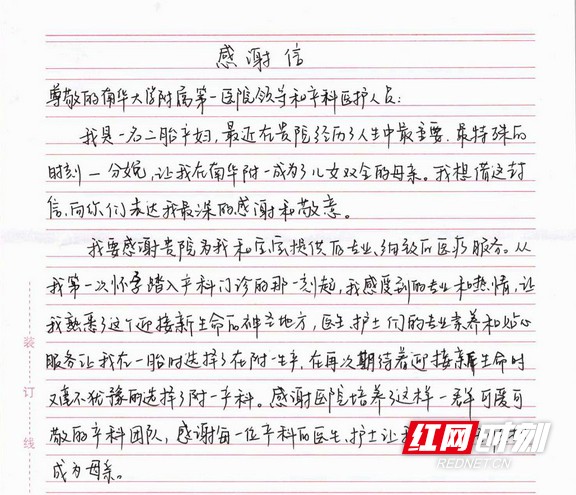 感谢信
尊敬的南华大学附属第一医院领导和产科医护人员:
我是一名二胎产妇,最近在贵院经历了人生中最重要、最特殊的
时刻—分娩,让我在南华附一成为了儿女双全的母亲。我想借这封
信,向你们表达我最深的感谢和敬意。
我要感谢贵院为我和宝宝提供的专业、细致的医疗服务。从
我第一次怀孕踏入产科门诊的那一刻起,我感受到的专业和热情,让
我熟悉了这个迎接新生命的神圣地方,医生、护士们的专业素养和贴心
服务让我在一胎时选择了在附一生产,在再次期待着迎接新生命时
又毫不犹豫的选择了附一产科。感谢医院培养了这样一群可爱可
敬的产科团队,感谢每一位产科的医生、护士让
成为母亲。
装
订
线
红网时刻
REDNET.CN